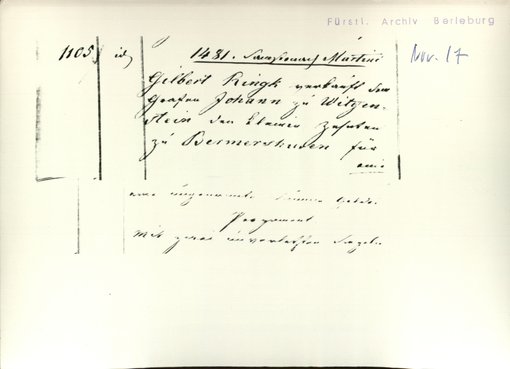 Fürstl. Archiv Berleburg
Nov. 17
1105. id. 1481. Samstag nach Martini
Gilbert Ringk verkauft dem
Grafen Johann zu Witgen-
stein den kleinen Zehnten
zu Bermershusen für
eine
eine ungenannte Summe Geldes.
Pergament
Mit zwei unverletzten Siegeln